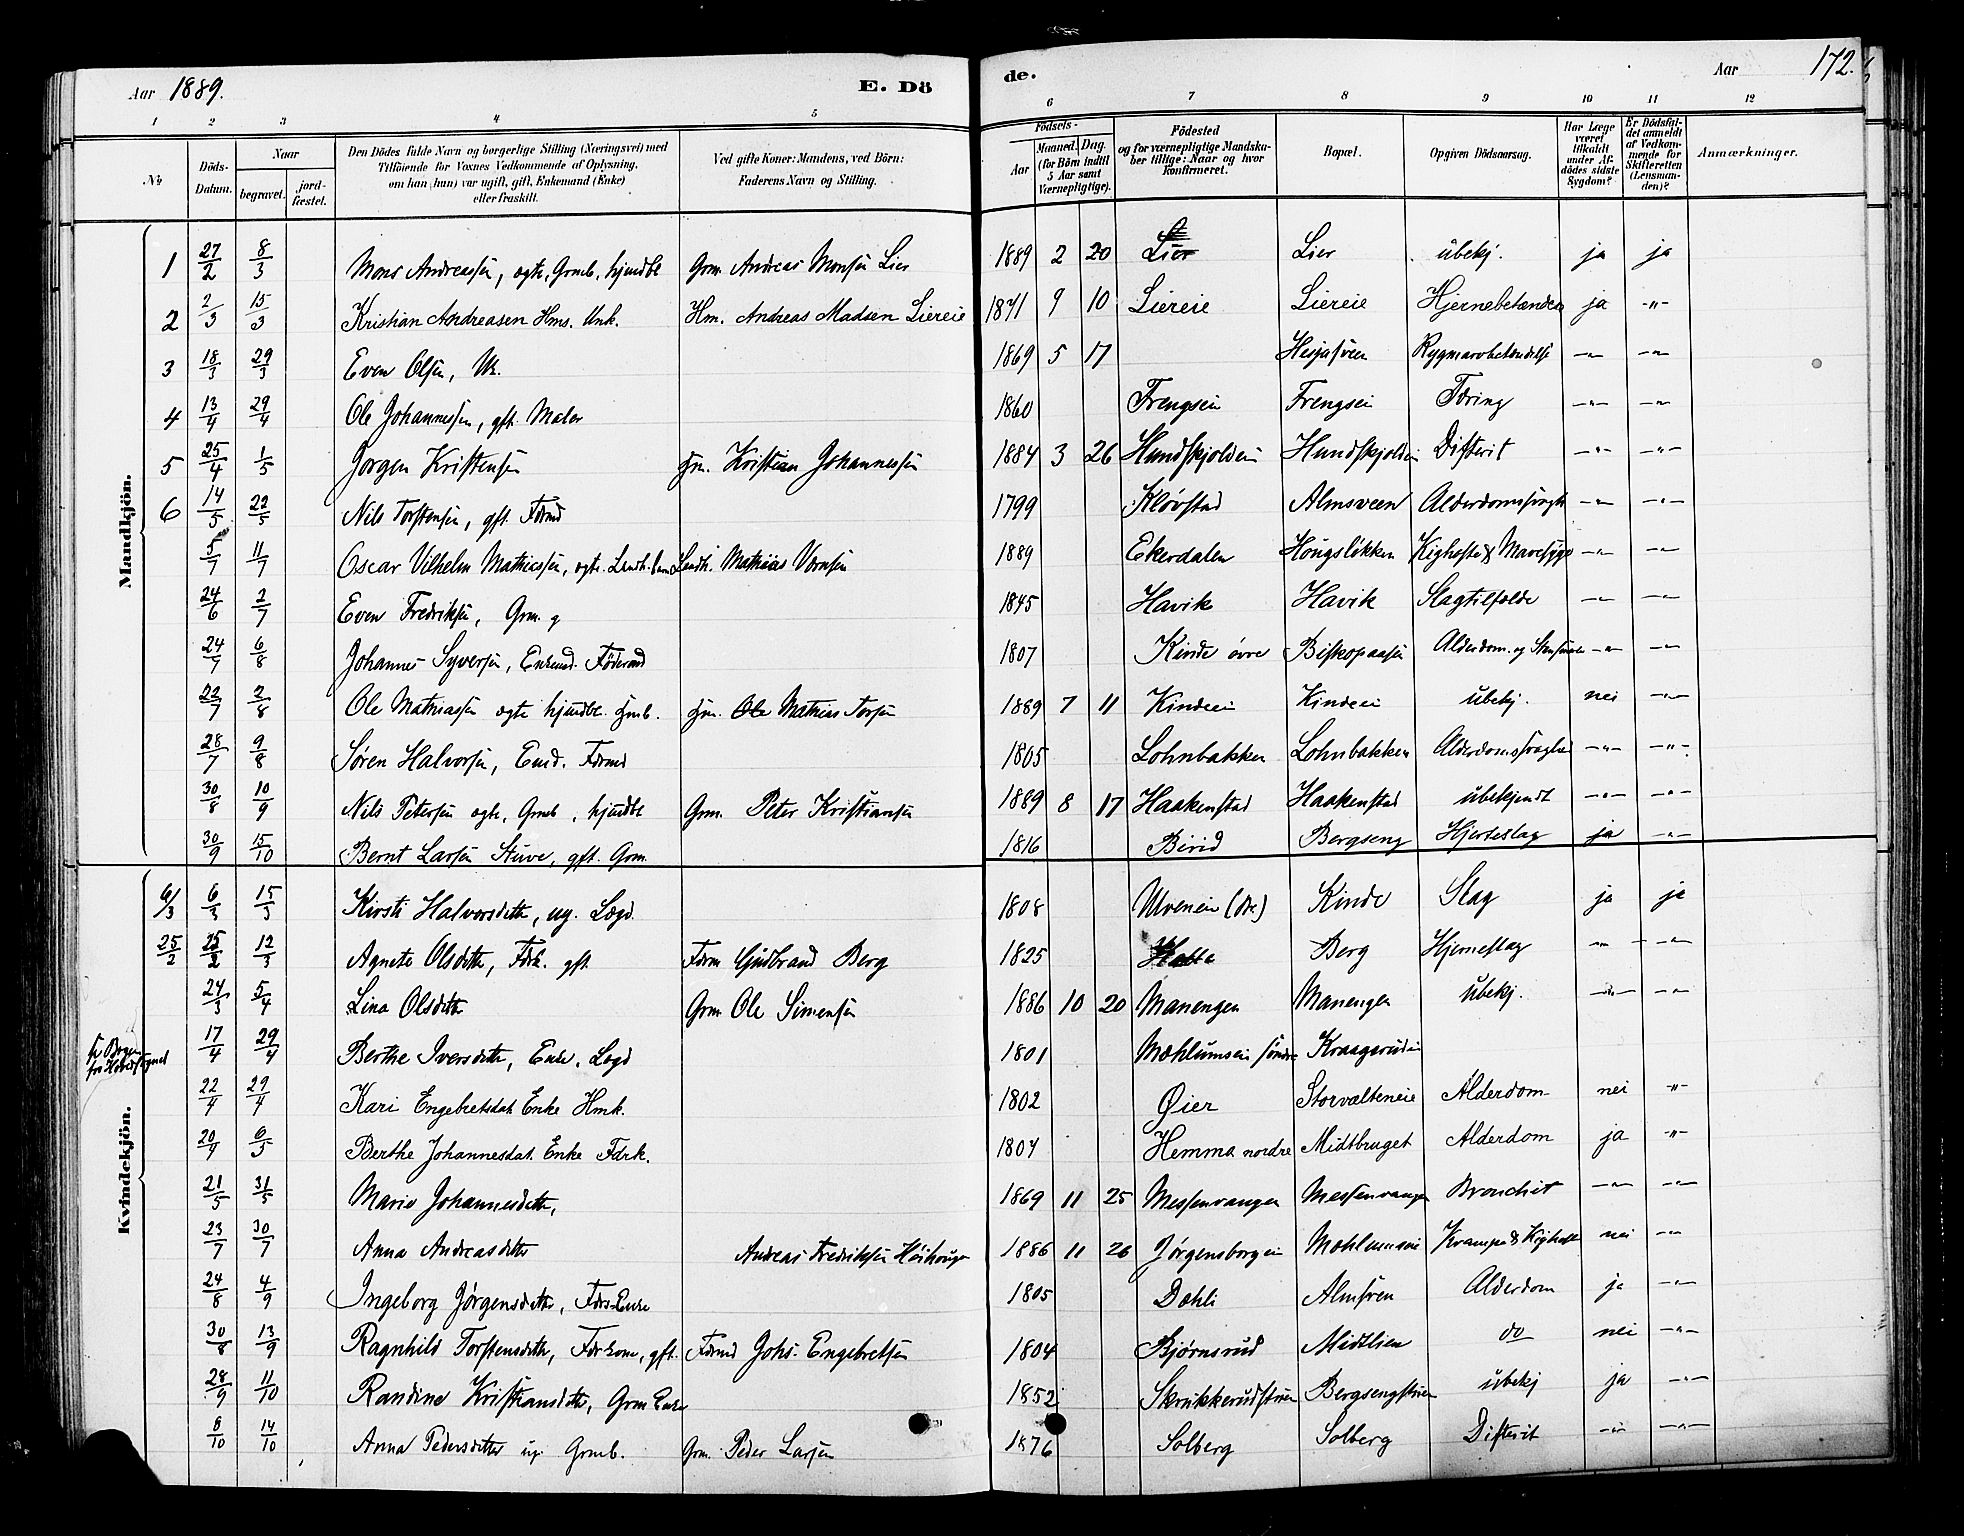 Aar 1889. E. Dö de. Aar 172.
1 2 3 4 5 6 7 8 9 10 11 12
No
Döds-Datum.
Naar
begravet.
jord-fæstet.
Den Dödes fulde Navn og borgerlige Stilling (Næringsvei) med
Tilföiende for Voxnes Vedkommende af Oplysning,
om han (hun) var ugift, gift, Enkemand (Enke)
eller fraskilt.
Ved gifte Koner: Mandens, ved Börn:
Faderens Navn og Stilling.
Födsels-
Aar
Maaned. Dag.
(for Börn indtil
5 Aar samt
Værnepligtige).
Födested
og for værnepligtige Mandska-
ber tillige: Naar og hvor
konfirmeret.
Bopæl.
Opgiven Dödsaarsag.
Har Læge
været
tilkaldt
under Af-
dödes sidste
Sygdom?
Er Dödsfal-
det anmeldt
af Vedkom-
mende for
Skifteretten
(Lensman-
den)?
Anmærkninger.
Mandkjön.
1 27/2 8/3 Mons Andreassen, ægte, Grmb. hjemdbt Grm. Andreas Monsen Lier 1889 2 20 Lier Lier ubekj. ja ja
2 2/3 15/3 Kristian Andreasen Hms. Unk. Hm. Andreas Madsen Liereie 1871 9 10 Liereie Liereie Hjernebetændelse ja -"-
3 18/3 29/3 Even Olsen, Uk. 1869 5 17 Hesjasveen Rygmarvbetændelse -"- -"-
4 13/4 29/4 Ole Johannessen, gft. Maler 1860 Frengseie Frengsei Tæring -"- -"-
5 25/4 1/5 Jørgen Kristensen Hm. Kristian Johannessen 1884 3 26 Hundskjoldeie Hundskjoldeie Difterit -"- -"-
6 14/5 22/5 Nils Torstensen, gft. Fdrmd 1799 Kløvstad Almsveen Alderdomssvagh -"- -"-
5/7 11/7 Oscar Vilhelm Mathiassen, ægte. Landh. barn Landh. Mathias 1889 Ekerdalen Hougsløkken Kighoste & Mavesyge -"- -"-
24/6 2/7 Even Fredriksen, Grm. g 1845 Havik Havik Slagtilfælde -"- -"-
24/7 6/8 Johannes Syversen, Enkemd. Føderaad 1807 Kinde øvre Biskopaasen Alderdom. og -"- -"-
22/7 2/8 Ole Mathiassen ægte hjemdbt. Hmb. Hm. Ole Mathias Torsen 1889 7 11 Kindeei Kindeei ubekj. nei -"-
28/7 9/8 Søren Halvorsen, Emd. Fdrmd 1805 Lohnbakken Lohnbakken Alderdomssvaghed -"- -"-
30/8 10/9 Nils Petersen ægte, Grmb, hjemdbt Grm. Peter Kristiansen 1889 8 17 Haakenstad Haakenstad ubekjendt -"- -"-
30/9 15/10 Bernt Larsen Stuve, gft. Grm. 1816 Birid Bergseng Hjerteslag ja -"-
Kvindekjön.
6/3 6/3 15/3 Kirsti Halvorsdtter, ug. Lægd. 1808 Ulveneie Kinde Slag ja ja
25/2 25/2 12/3 Agnete Olsdtter, Fdrk. gft. Fdrm Gudbrand Berg 1825 Berg Hjerneslag -"- -"-
24/3 5/4 Lina Olsdtter Grm Ole Simensen 1886 10 20 Manengen Manengen ubekj. -"- -"-
17/4 29/4 Berthe Iversdtter, Enke. Lægd 1801 Mæhlumseie søndre Kraagerudeie
22/4 29/4 Kari Engebretsdat. Enke Hmk. 1802 Øier Storvælteneie Alderdom nei -"-
20/4 6/5 Berthe Johannesdat. Enke Fdrk. 1804 Hemma nordre Midtbruget Alderdom ja -"-
21/5 31/5 Marie Johannesdtter, 1869 11 25 Messenvangen Messenvangen Bronchit -"- -"-
23/7 30/7 Anna Andreasdtter Andreas Fredriksen Høihougen 1886 11 26 Jørgensborgeie Mæhlumseie Krampe & Kighoste nei -"-
24/8 4/9 Ingeborg Jørgensdtter, Fdrs Enke 1805 Dæhli Almsveen Alderdom ja -"-
30/8 13/9 Ragnhild Torstensdtter, Fdrkone, gft. Fdrmd Johs. Engebretsen 1804 Bjørnsrud Midtlien do nei -"-
28/9 11/10 Randine Kristiansdtter, Grm Enke 1852 Skrukkerudstuen Bergsengstuen ubekj ja -"-
8/10 14/10 Anna Pedersdtter ug Grmb. Grm. Peder Larsen 1876 Solberg Solberg Difterit -"- -"-